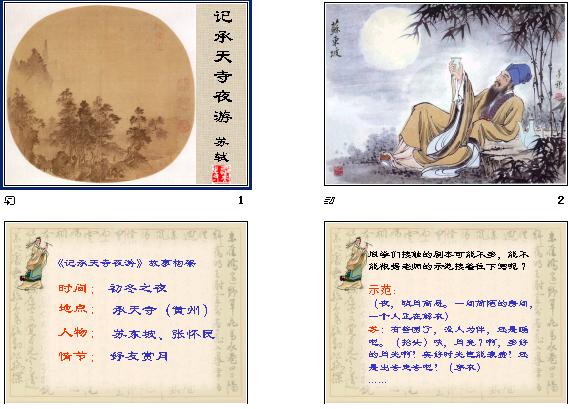 记承天寺夜游
苏轼
1
蘇東坡
2
《记承天寺夜游》故事构架
时间： 初冬之夜
地点： 承天寺（黄州）
人物： 苏东坡、张怀民
情节： 好友赏月
同学们接触的剧本可能不多，能不
能根据老师的示范接着往下写呢？
示范：
（夜，皓月高悬。一间简陋的房间，
一个人正在解衣）
苏：有些困了，没人为伴，还是睡
吧。（抬头）哟，月亮？啊，多好
的月光啊！美好时光岂能浪费！还
是出去走走吧！（穿衣）
……